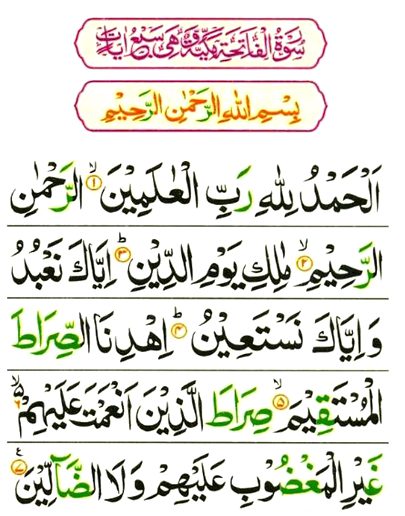 سُوْرَةُ الْفَاتِحَةِ مَكِّيَّةٌ وَّهِىَ سَبْعُ اٰيَاتٍ
بِسْمِ اللّٰهِ الرَّحْمٰنِ الرَّحِيْمِ
اَلْحَمْدُ لِلّٰهِ رَبِّ الْعٰلَمِيْنَ ۙ﴿۱﴾ الرَّحْمٰنِ
الرَّحِيْمِ ۙ﴿۲﴾ مٰلِكِ يَوْمِ الدِّيْنِ ؕ﴿۳﴾ اِيَّاكَ نَعْبُدُ
وَ اِيَّاكَ نَسْتَعِيْنُ ؕ﴿۴﴾ اِهْدِنَا الصِّرَاطَ
الْمُسْتَقِيْمَ ۙ﴿۵﴾ صِرَاطَ الَّذِيْنَ اَنْعَمْتَ عَلَيْهِمْ ۙ۬﴿۶﴾
غَيْرِ الْمَغْضُوْبِ عَلَيْهِمْ وَ لَا الضَّآلِّيْنَ ﴿۷﴾